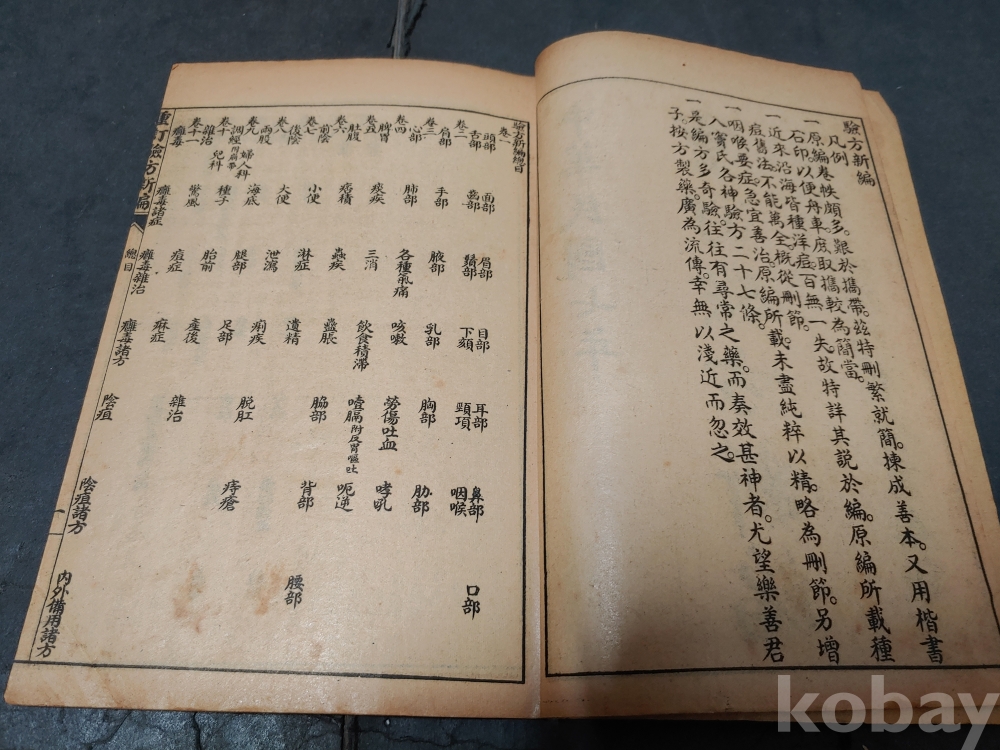 驗方新編
凡例
一原編卷帙頗多。艱於攜帶。茲特刪繁就簡。揀成善本。又用楷書
石印。以便舟車。庶取攜較為簡當。
一近來沿海皆種洋痘。百無一失。故特詳其說於編。原編所載種
痘舊法。不能萬全。概從刪節。
一咽喉要症。急宜善治。原編所載。未盡純粹以精。略為刪節。另增
入竇氏各神驗方二十七條。
一是編方多奇驗。往往有尋常之藥。而奏效甚神者。尤望樂善君
子。按方製藥。廣為流傳。幸無以淺近而忽之。
驗方新編總目
卷一
頭部 面部 眉部 目部 耳部 鼻部 口部
舌部 齒部 鬚部 下頦 頸項 咽喉
卷二
肩部 手部 腋部 乳部 胸部 肋部
卷三
心部 肺部 各種氣痛 咳嗽 勞傷吐血 哮吼
卷四
脾胃 痰疾 三消 飲食積滯 噎膈附反胃嘔吐 呃逆
卷五
肚腹 痞積 蟲疾 蠱脹 脇部 背部 腰部
卷六
前陰 小便 淋症 遺精
卷七
後陰 大便 泄瀉 痢疾 脫肛 痔瘡
卷八
兩股 海底 腿部 足部
卷九 婦人科
調經附崩帶 種子 胎前 產後
卷十 兒科
雜治 驚風 痘症 麻症 雜治
卷十一
癰毒 癰毒諸症 癰毒雜治 癰毒諸方 陰疽 陰疽諸方 內外備用諸方
重訂驗方新編 總目 一
kobay